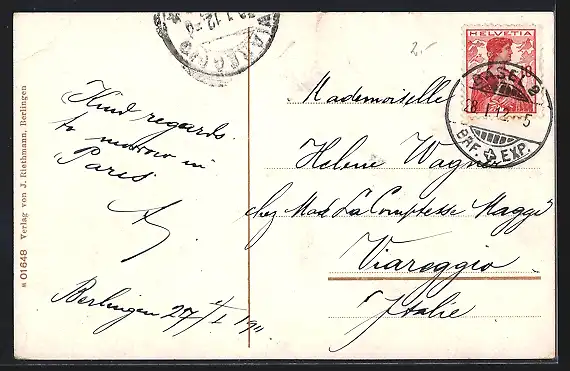 VIAREGGIO
HELVETIA
10
BASEL 9
28.I.12.-5
BRF. EXP.
2.-
Kind regards.
to morrow in
Paris
Berlingen 27/I 1911
Mademoiselle
Helene Wagner
chez Mad. La Comptesse Maggi
Viareggio
Italie
01648 Verlag von J. Riethmann, Berlingen